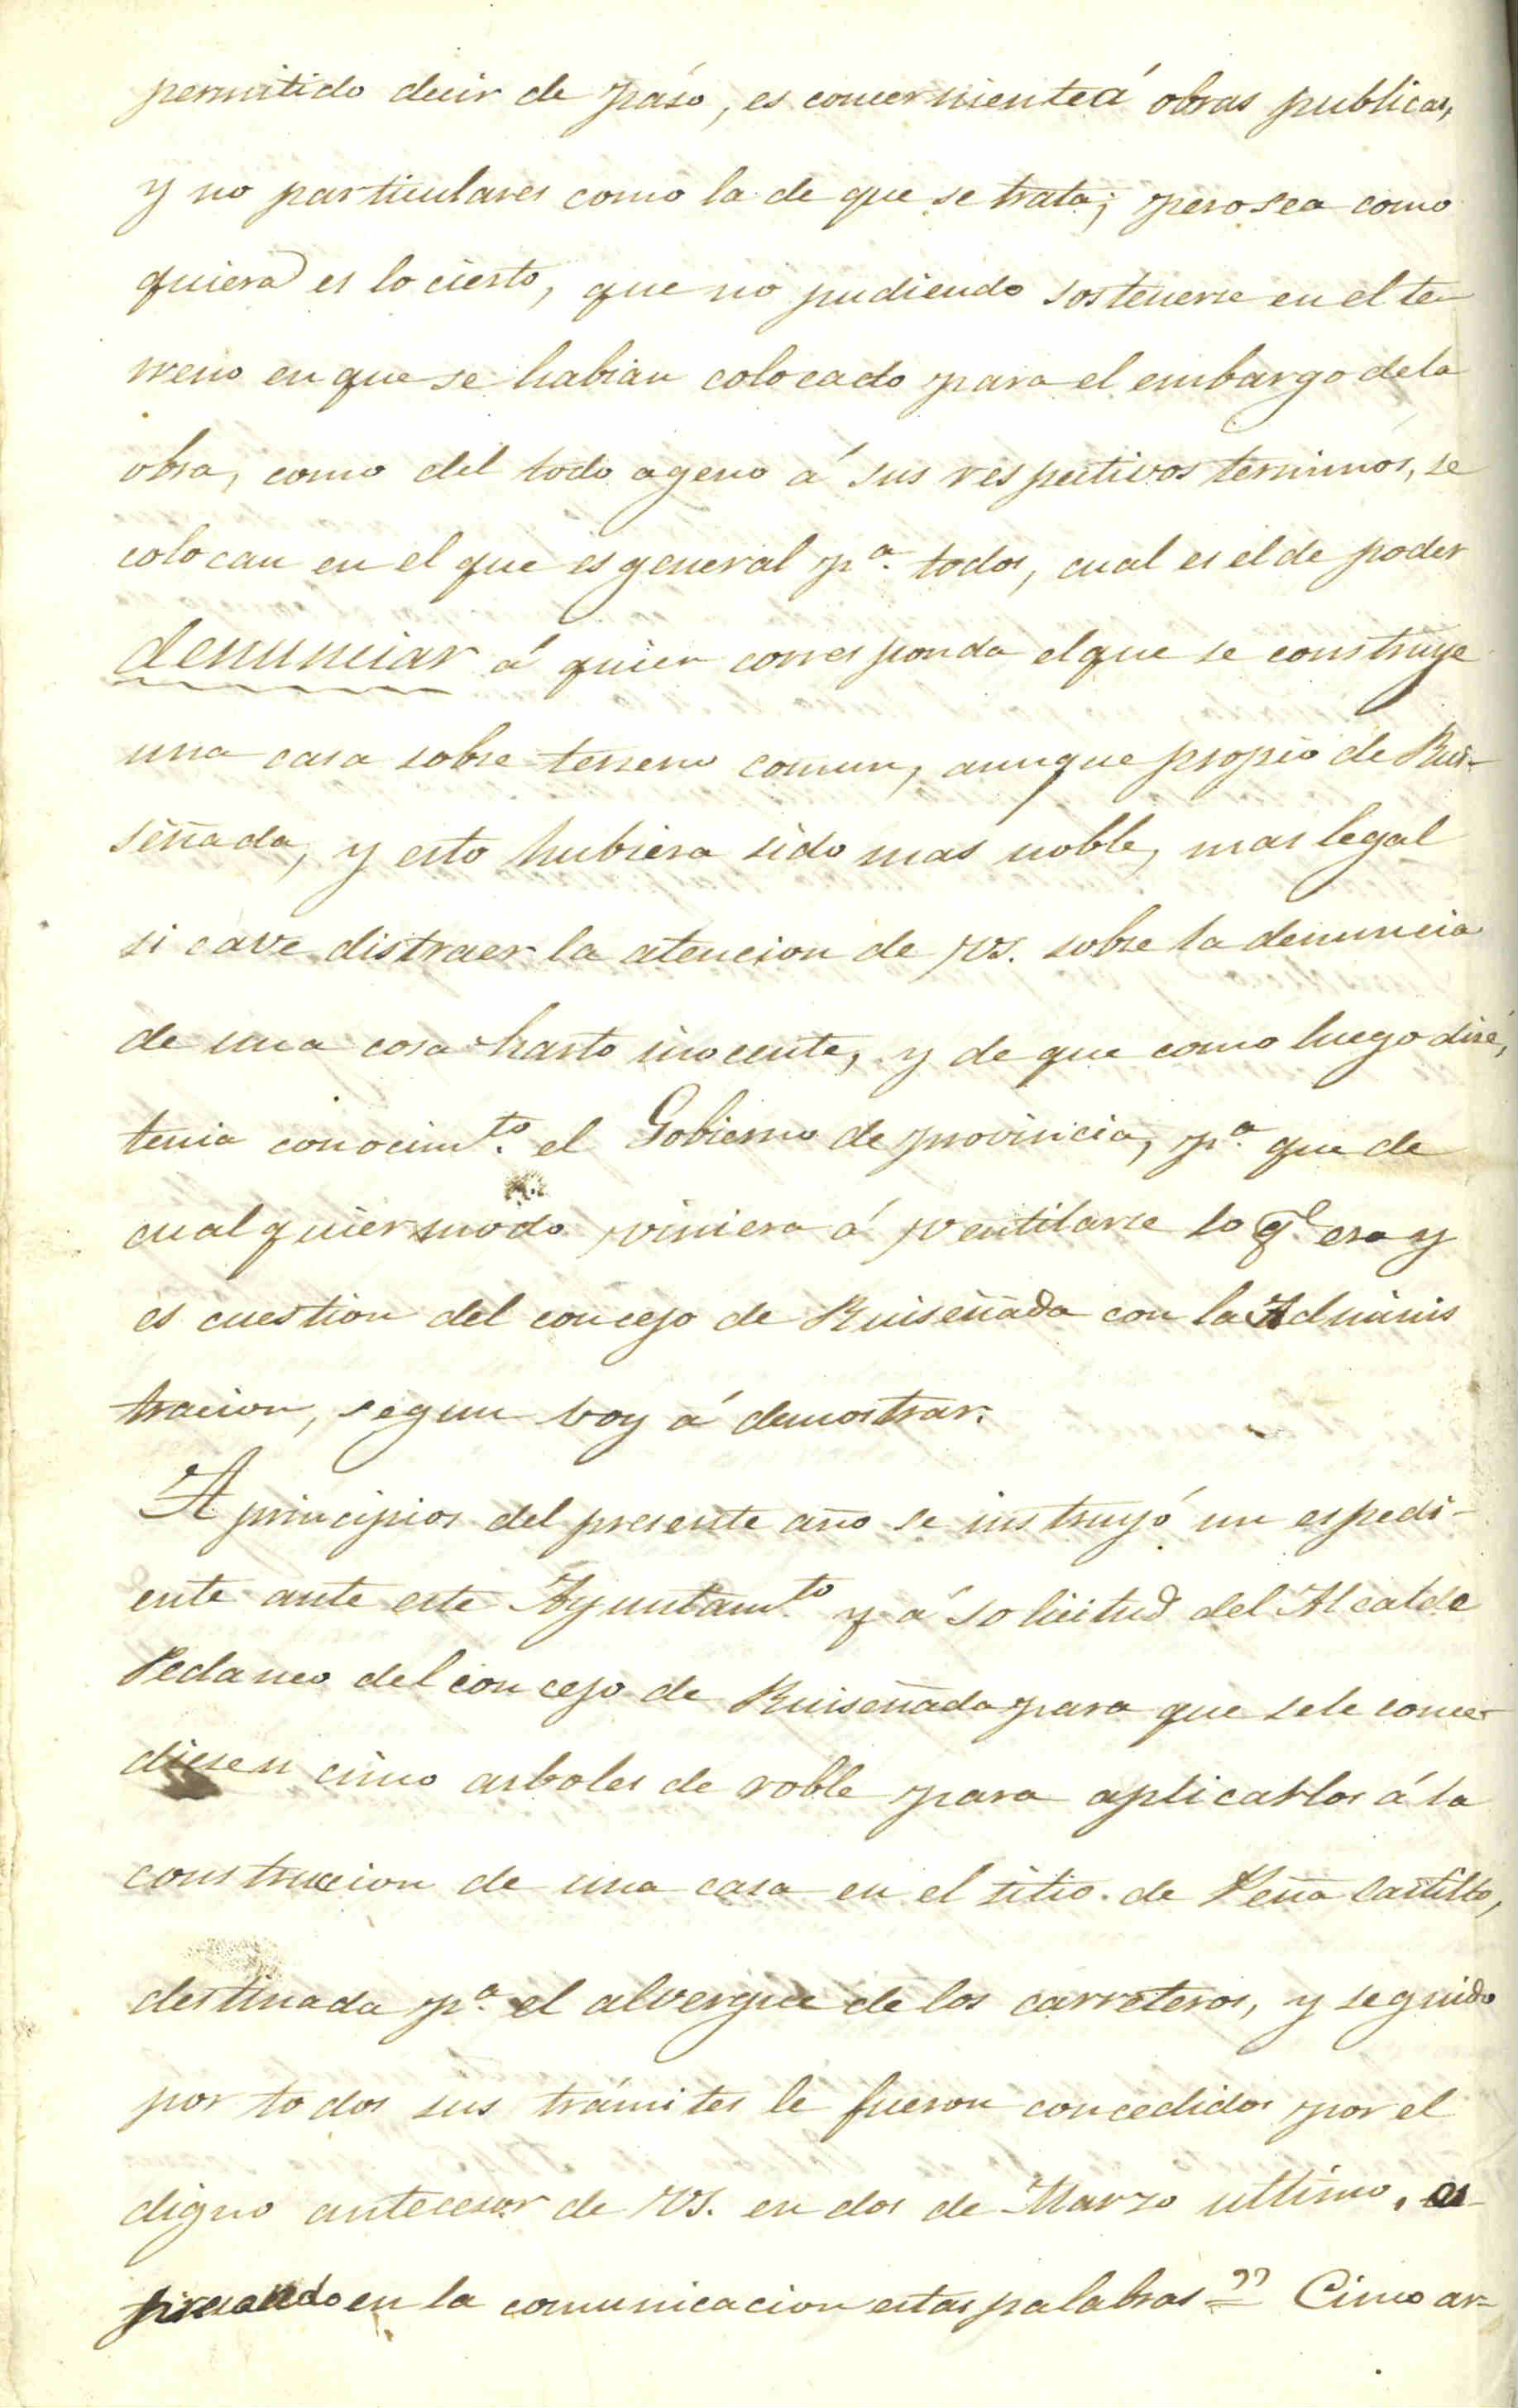 permitido decir de páso, es concerniente á obras publicas,
y no particulares como la de que se trata; pero sea como
quiera es lo cierto, que no pudiendo sostenerse en el te-
rreno en que se habian colocado para el embargo de la
obra, como del todo ageno á sus respectivos terminos, se
colocan en el que es general pª. todos, cual es el de poder
denunciar á quien corresponda el que se construye
una casa sobre terreno comun, aunque propio de Rui-
señada, y esto hubiera sido mas noble, mas legal
si cave distraer la atencion de VS. sobre la denuncia
de una cosa harto inocente, y de que como luego diré,
tenia conocimto. el Gobierno de provincia, pª. que de
cualquier modo viniera á ventilarse lo qe. era y
es cuestion del concejo de Ruiseñada con la Adminis
tracion, segun voy á demostrar.
A principios del presente año se instruyó un espedi-
ente ante este Ayuntamto. y á solicitud del Alcalde
Pedaneo del concejo de Ruiseñada para que se le conce-
diesen cinco arboles de roble para aplicarlos á la
construccion de una casa en el sitio de Peña Castillo,
destinada pª. el alvergue de los carreteros, y seguido
por todos sus trámites le fueron concedidos por el
digno antecesor de VS. en dos de Marzo ultimo, es-
presando en la comunicacion estas palabras=" Cinco ar=